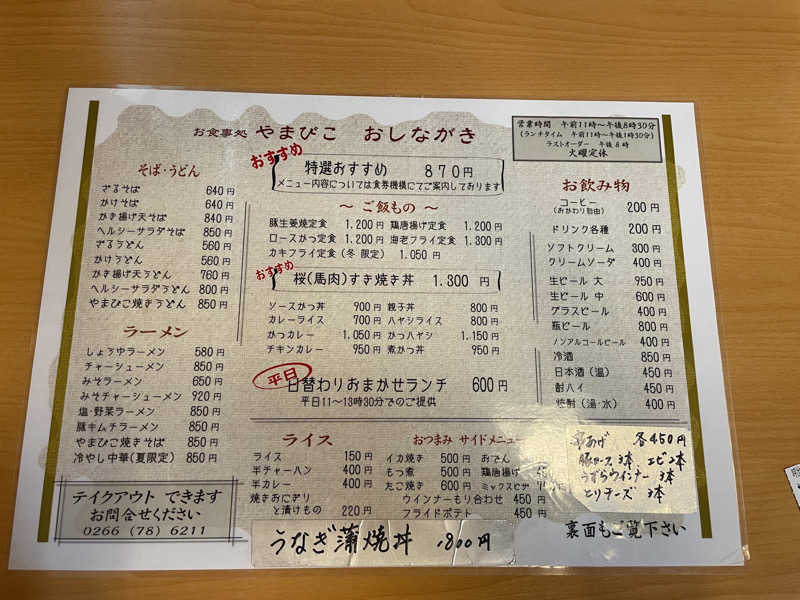 お食事処 やまびこ おしながき
営業時間 午前11時〜午後8時30分
(ランチタイム 午前11時〜午後1時30分)
ラストオーダー 午後 8時
火曜定休
そば・うどん
ざるそば 640円
かけそば 640円
かき揚げ天そば 840円
ヘルシーサラダそば 850円
ざるうどん 560円
かけうどん 560円
かき揚げ天うどん 760円
ヘルシーサラダうどん 800円
やまびこ焼きうどん 850円
ラーメン
しょうゆラーメン 580円
チャーシューメン 850円
みそラーメン 650円
みそチャーシューメン 920円
塩・野菜ラーメン 850円
豚キムチラーメン 850円
やまびこ焼きそば 850円
冷やし中華(夏限定) 850円
テイクアウト できます
お問合せください
0266 (78) 6211
おすすめ
特選おすすめ 870円
メニュー内容については食券機横にてご案内しております
〜 ご飯もの 〜
豚生姜焼定食 1,200円 鶏唐揚げ定食 1,200円
ロースかつ定食 1,200円 海老フライ定食 1,300円
カキフライ定食 (冬 限定) 1,050円
おすすめ
桜(馬肉)すき焼き丼 1,300 円
ソースかつ丼 900円 親子丼 800円
カレーライス 700円 ハヤシライス 800円
かつカレー 1,050円 かつハヤシ 1,150円
チキンカレー 950円 煮かつ丼 950円
平日
日替わりおまかせランチ 600円
平日11〜13時30分でのご提供
ライス
ライス 150円
半チャーハン 400円
半カレー 400円
焼きおにぎり
と漬けもの 220円
おつまみ サイドメニュー
イカ焼き 500円 おでん
もつ煮 500円 鶏唐揚げ 450
たこ焼き 600円 ミックスピザ
ウインナーもり合わせ 450円
フライドポテト 450円
うなぎ蒲焼丼 1800円
お飲み物
コーヒー 200円
(おかわり自由)
ドリンク各種 200円
ソフトクリーム 300円
クリームソーダ 400円
生ビール 大 950円
生ビール 中 600円
グラスビール 400円
瓶ビール 800円
ノンアルコールビール 400円
冷酒 850円
日本酒(温) 450円
酎ハイ 450円
焼酎(湯・水) 400円
串あげ 各450円
豚ロース3本 エビ2本
うずらウインナー 3本
とりチーズ 3本
裏面もご覧下さい